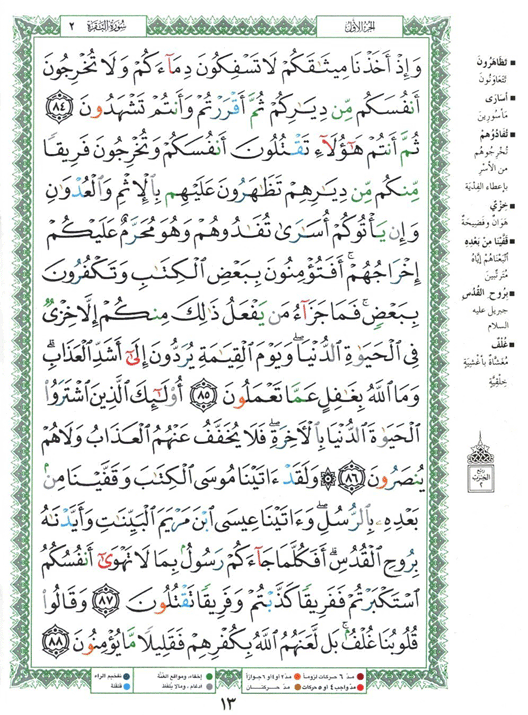 الجزء الأول
سورة البقرة ٢
وَإِذْ أَخَذْنَا مِيثَٰقَكُمْ لَا تَسْفِكُونَ دِمَآءَكُمْ وَلَا تُخْرِجُونَ
أَنفُسَكُم مِّن دِيَٰرِكُمْ ثُمَّ أَقْرَرْتُمْ وَأَنتُمْ تَشْهَدُونَ ٨٤
ثُمَّ أَنتُمْ هَٰٓؤُلَآءِ تَقْتُلُونَ أَنفُسَكُمْ وَتُخْرِجُونَ فَرِيقًا
مِّنكُم مِّن دِيَٰرِهِمْ تَظَٰهَرُونَ عَلَيْهِم بِٱلْإِثْمِ وَٱلْعُدْوَٰنِ
وَإِن يَأْتُوكُمْ أُسَٰرَىٰ تُفَٰدُوهُمْ وَهُوَ مُحَرَّمٌ عَلَيْكُمْ
إِخْرَاجُهُمْ ۚ أَفَتُؤْمِنُونَ بِبَعْضِ ٱلْكِتَٰبِ وَتَكْفُرُونَ
بِبَعْضٍ ۚ فَمَا جَزَآءُ مَن يَفْعَلُ ذَٰلِكَ مِنكُمْ إِلَّا خِزْىٌ
فِى ٱلْحَيَوٰةِ ٱلدُّنْيَا ۖ وَيَوْمَ ٱلْقِيَٰمَةِ يُرَدُّونَ إِلَىٰٓ أَشَدِّ ٱلْعَذَابِ ۗ
وَمَا ٱللَّهُ بِغَٰفِلٍ عَمَّا تَعْمَلُونَ ٨٥ أُو۟لَٰٓئِكَ ٱلَّذِينَ ٱشْتَرَوُا۟
ٱلْحَيَوٰةَ ٱلدُّنْيَا بِٱلْءَاخِرَةِ ۖ فَلَا يُخَفَّفُ عَنْهُمُ ٱلْعَذَابُ وَلَا هُمْ
يُنصَرُونَ ٨٦ ۞ وَلَقَدْ ءَاتَيْنَا مُوسَى ٱلْكِتَٰبَ وَقَفَّيْنَا مِنۢ
بَعْدِهِۦ بِٱلرُّسُلِ ۖ وَءَاتَيْنَا عِيسَى ٱبْنَ مَرْيَمَ ٱلْبَيِّنَٰتِ وَأَيَّدْنَٰهُ
بِرُوحِ ٱلْقُدُسِ ۗ أَفَكُلَّمَا جَآءَكُمْ رَسُولٌۢ بِمَا لَا تَهْوَىٰٓ أَنفُسُكُمُ
ٱسْتَكْبَرْتُمْ فَفَرِيقًا كَذَّبْتُمْ وَفَرِيقًا تَقْتُلُونَ ٨٧ وَقَالُوا۟
قُلُوبُنَا غُلْفٌۢ ۚ بَل لَّعَنَهُمُ ٱللَّهُ بِكُفْرِهِمْ فَقَلِيلًا مَّا يُؤْمِنُونَ ٨٨
■ تظاهرون
تتعاونون
■ أسارى
مأسورين
■ تفادوهم
تخرجوهم
من الأسر
بإعطاء الفدية
■ خزي
هوان وفضيحة
■ قفينا من بعده
أتبعناهم إياه
مترتبين
■ بروح القدس
جبريل عليه
السلام
■ غلف
مغشاة بأغشية
خلقية
ربع
الحزب
٢
مد ٦ حركات لزوما
مد ٢ أو ٤ أو ٦ جوازا
إخفاء، ومواقع الغنة
تفخيم الراء
مد واجب ٤ أو ٥ حركات
مد حركتان
إدغام، وما لا يلفظ
قلقلة
١٣